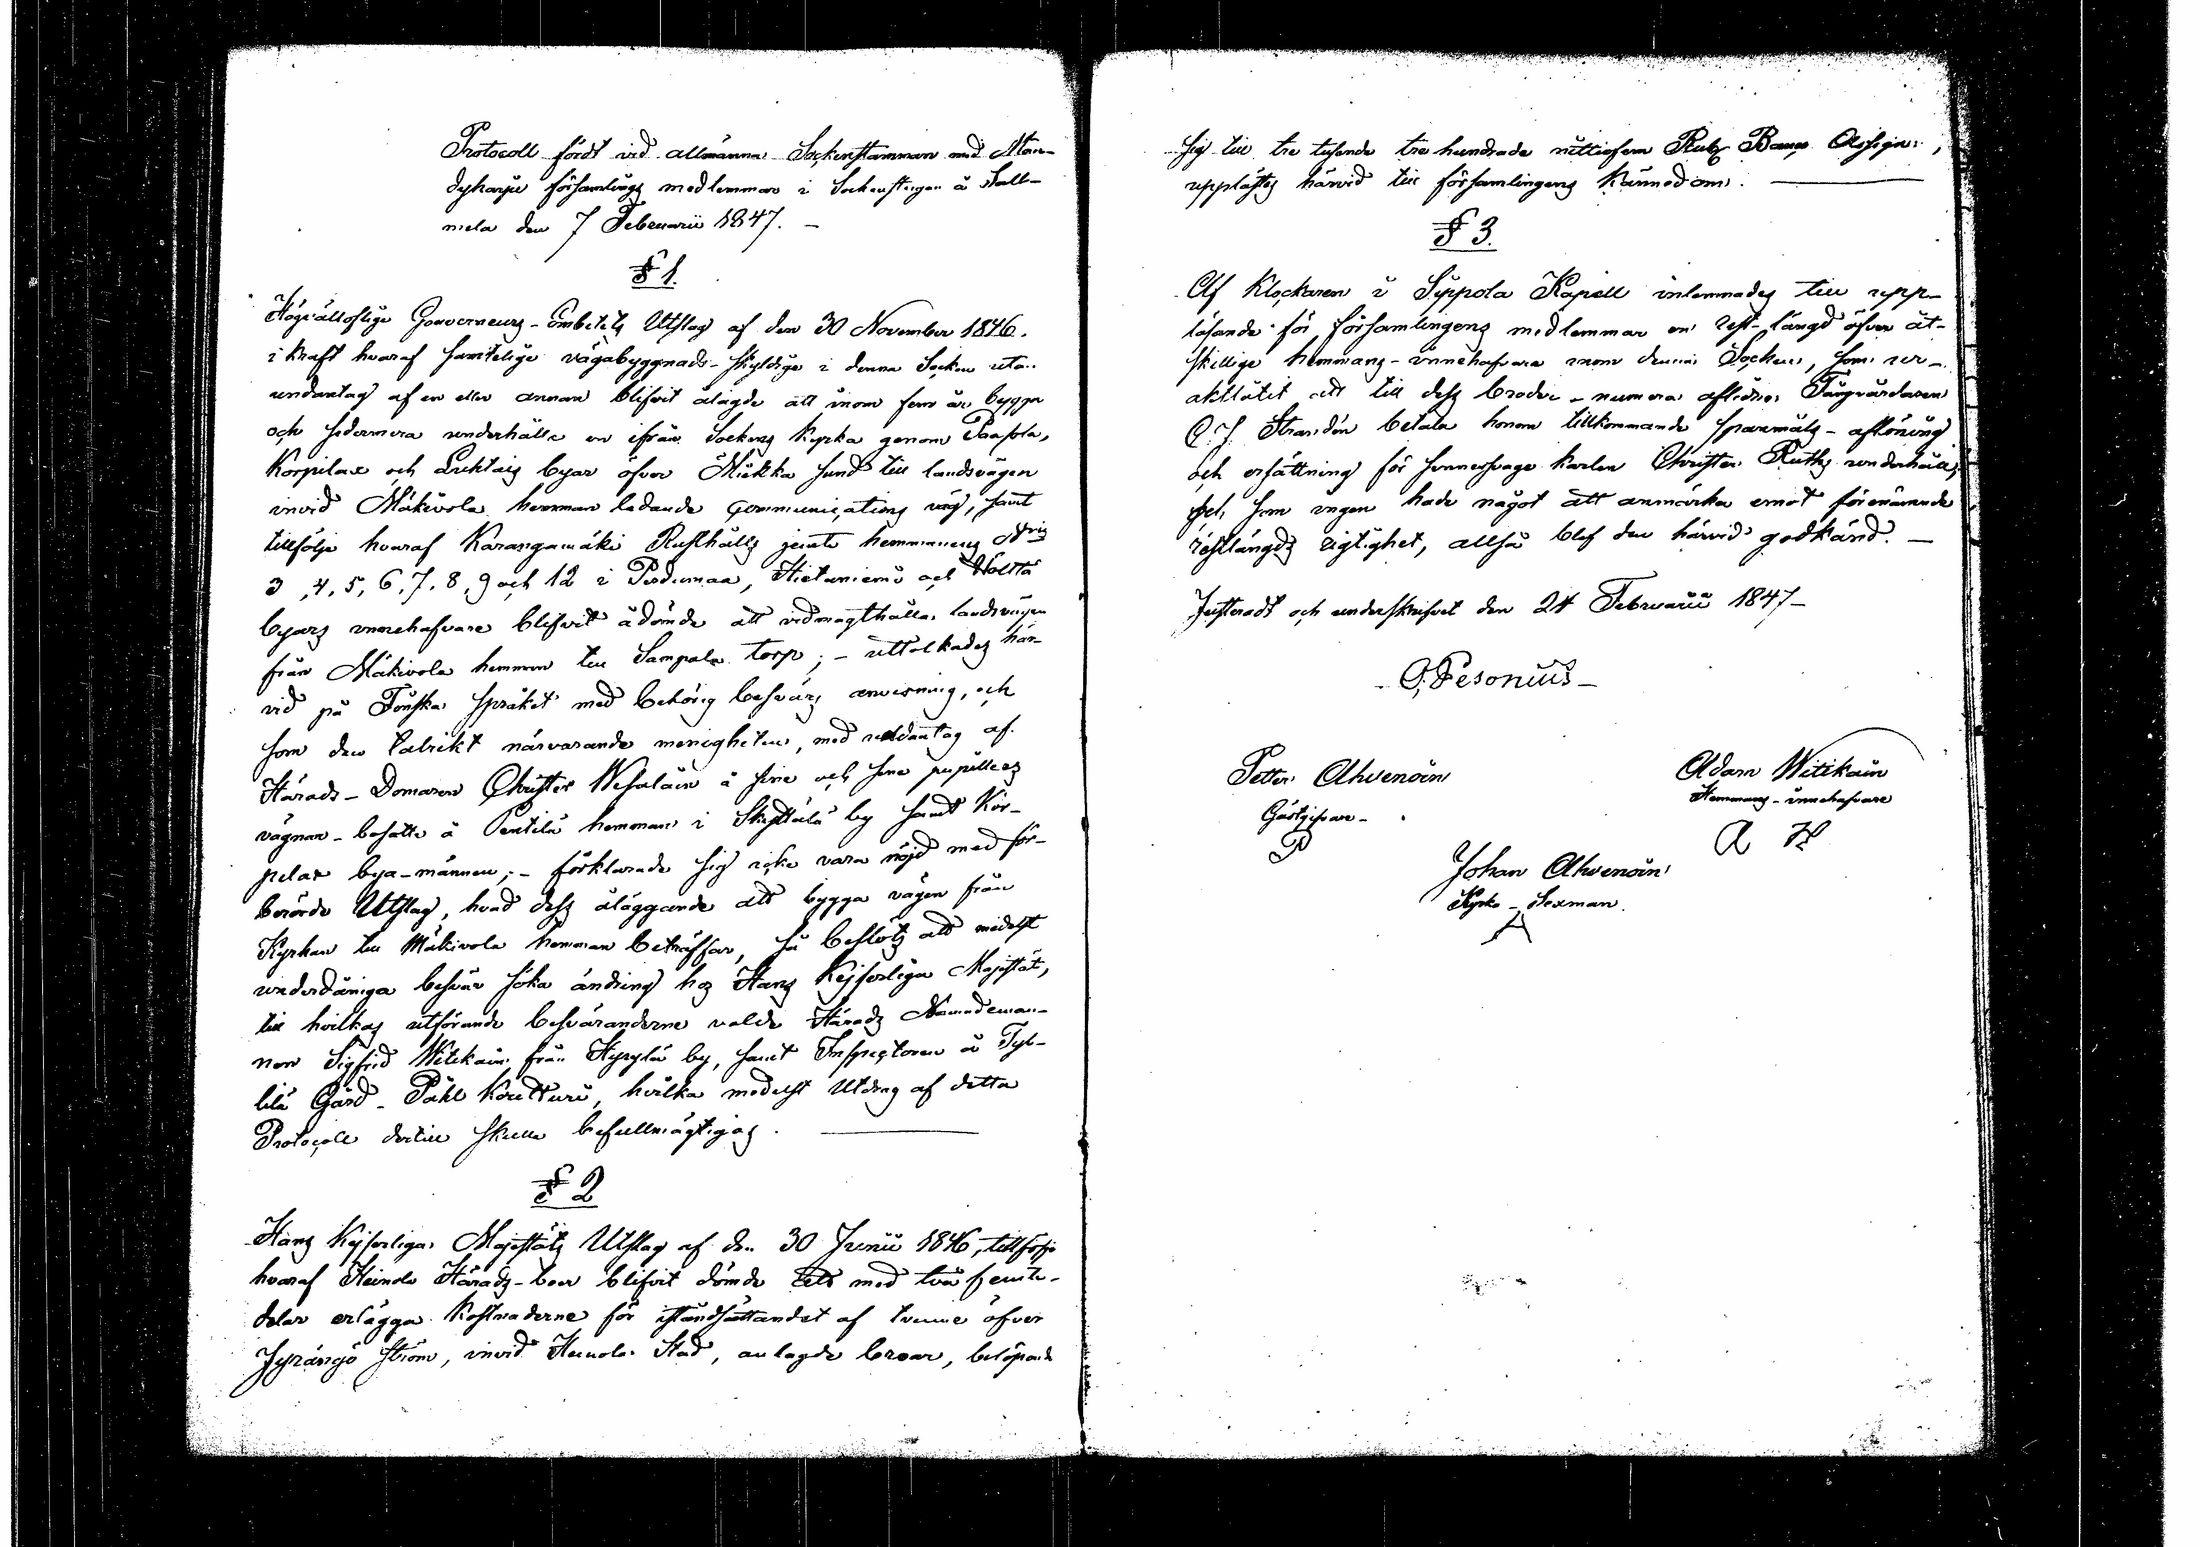 Protocoll fördt vid allmänna Sockenstamman med Män-
dyharju församlings medlemmar i Sockenstugan å Sall-
mela den 7 Februarii 1847. —
§ 1.
Högvälloflige Gouverneurs-Embetets Utslag af den 30 November 1846.
i kraft hvaraf samtelige vägabyggnads-skyldige i denna Socken utan
undantag af en eller annan blifvit ålagde att inom fem år bygga
och sedermera underhålla en ifrån Sockens Kyrka genom Paasola,
Korpilax och Lichtais byar öfver Miekka sund till landsvägen
invid Mäkivola hemman ledande Communications väg, samt
tillfölje hvaraf Karangamäki Rusthålls jemte hemmanens N:ris
3, 4, 5, 6, 7, 8, 9 och 12 i Pertumaa, Hietaniemi och Woltti
byars innehafvare blifvit ådömde att vidmagthålla landsvägen
från Mäkivola hemman till Sampala torp; — uttolkades här-
vid på Finska språket med behörig besvärs anvisning, och
som den talrikt närvarande menigheten, med undantag af
Härads-Domaren Christer Wesaläin å sine och sine pupillers
vägnar-besatte å Penttilä hemman i by samt Kor-
pelax bya-männen; — förklarade sig icke vara nöjd med för-
berörde Utslag, hvad dess åläggande att bygga vägen från
Kyrkan till Mäkivola hemman beträffar, så beslöts att medelst
underdåniga besvär söka ändring hos Hans Kejserliga Majestät,
till hvilkas utförande besväranderne valde Härads Nämndeman-
nen Sigfrid Witikain från Hyrylä by, samt Inspectoren å Tyk-
lilä Gård - Påhl Koutturi, hvilka medelst Utdrag af detta
Protocoll dertill skulle befullmägtigas. —
§ 2
Hans Kejserliga Majestäts Utslag af den 30 Junii 1846, tillfölje
hvaraf Heinola Härads-boer blifvit dömde att med två femte-
delar erlägga kostnaderne för iståndsättandet af tvenne öfver
Jyrängö ström, invid Heinola Stad, anlagde broar, belöpande
sig till tre tusende tre hundrade nittiofem Rub Banco Assign:,
upplästes härvid till församlingens kännedom. —
§ 3.
Af Klockaren i Syppola Kapell inlemnades till upp-
läsande för församlingens medlemmar en rest-längd öfver åt-
skillige hemmans-innehafvare inom denna Socken, som ur-
aktlåtit att till dess broder - numera aflidne Fångvärdaren
C. J. Strandén betala honom tillkommande spannmåls-aflöning
och ersättning för sinnessvage karlen Christer Ruths underhåll,
och som ingen hade något att anmärka emot förenämnde
restlängds rigtighet, alltså blef den härvid godkänd. —
Justeradt och underskrifvet den 24 Februarii 1847 —
C. Pesonius —
Petter Ahvenoin
Gästgifvare -
P
Adam Witikain
Hemmans-innehafvare
A W
Johan Ahvenoin
Kyrko-Sexman.